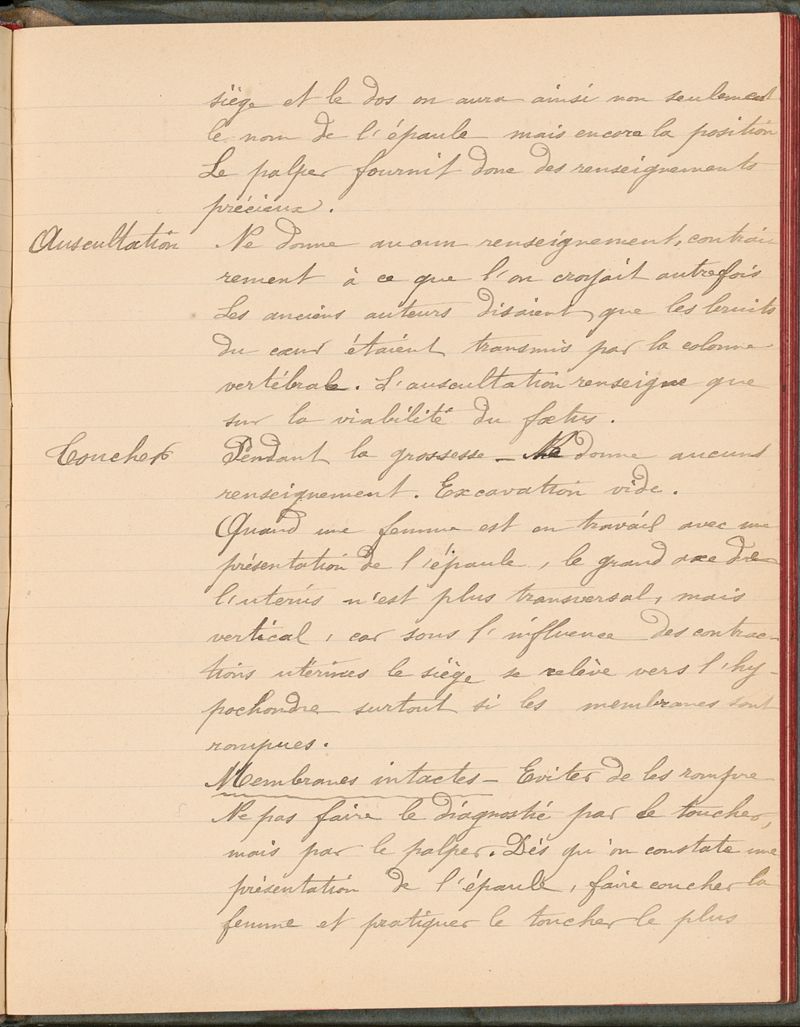 siège et le dos on aura ainsi non seulement
le nom de l'épaule mais encore la position
Le palper fournit donc des renseignements
précieux.
Auscultation Ne donne aucun renseignement, contrai
rement à ce que l'on croyait autrefois
Les anciens auteurs disaient que les bruits
du cœur étaient transmis par la colonne
vertébrale. L'auscultation renseigne que
sur la viabilité du fœtus.
Toucher Pendant la grossesse — Ne donne aucuns
renseignement. Excavation vide.
Quand une femme est en travail avec une
présentation de l'épaule, le grand axe de
l'utérus n'est plus transversal, mais
vertical, car sous l'influence des contrac-
tions utérines le siège se relève vers l'hy-
pochondre surtout si les membranes sont
rompues.
Membranes intactes — Eviter de les rompre
Ne pas faire le diagnostic par le toucher,
mais par le palper. Dès qu'on constate une
présentation de l'épaule, faire coucher la
femme et pratiquer le toucher le plus